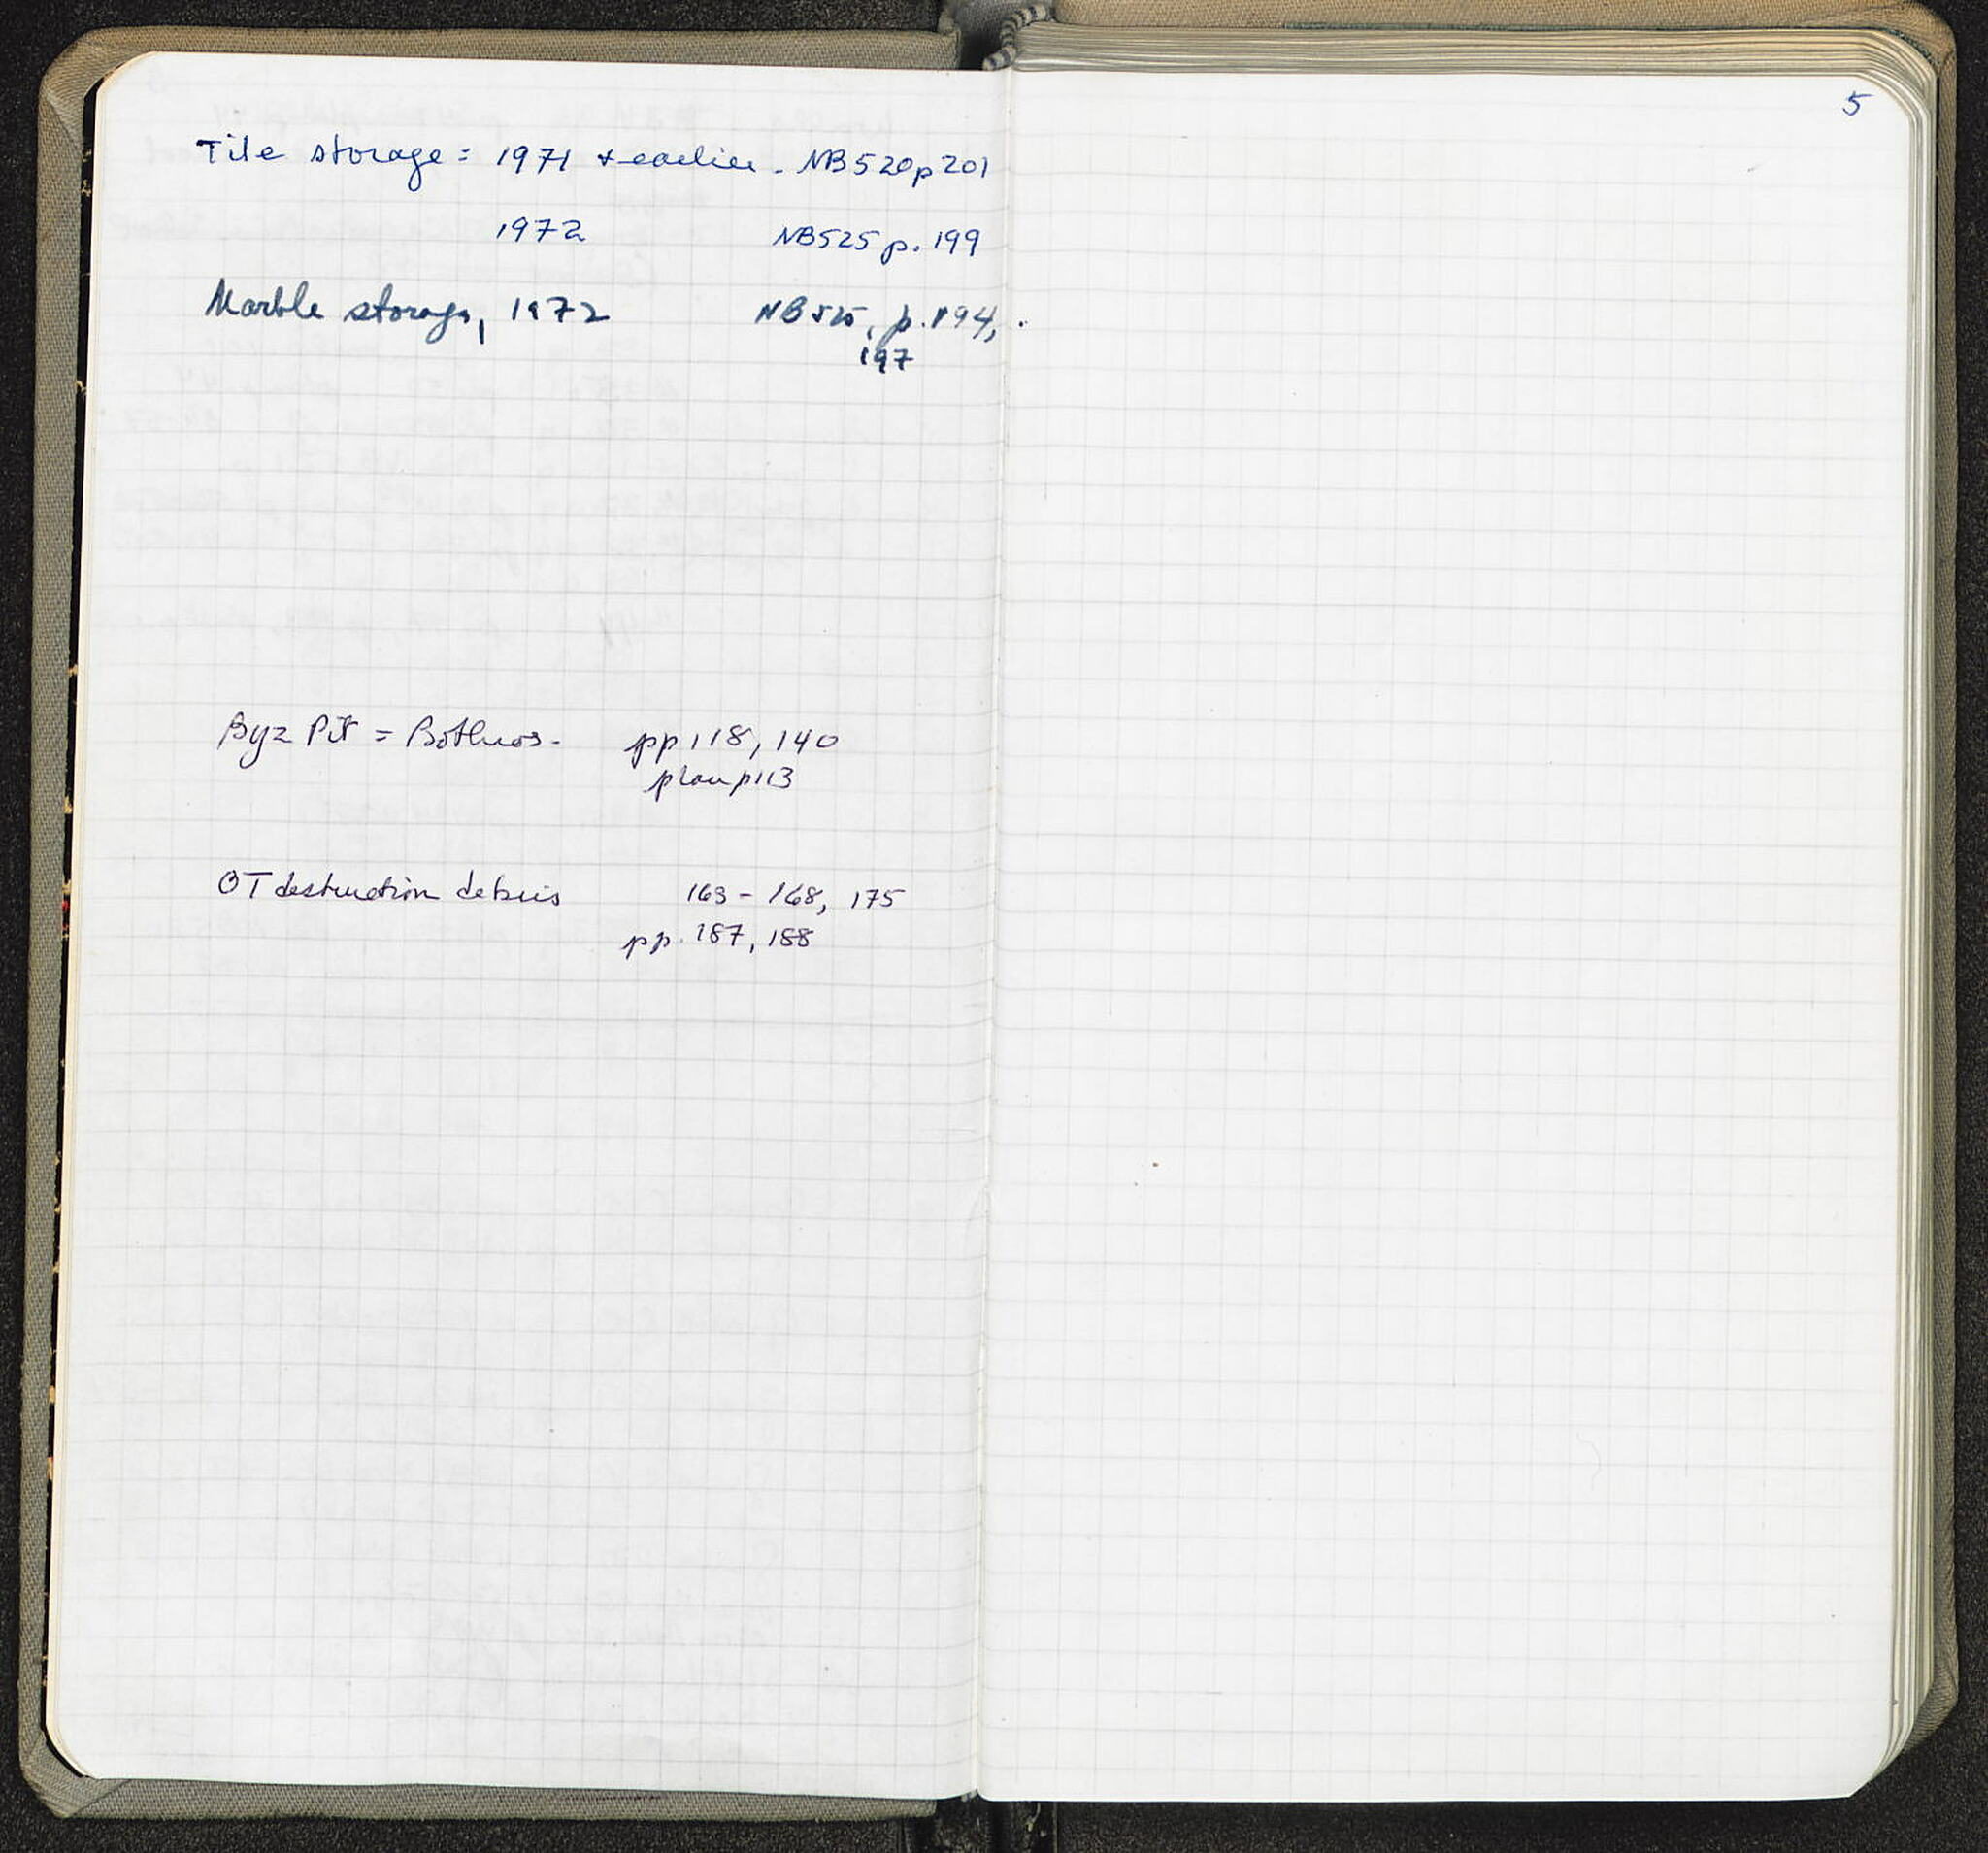 Tile storage = 1971 + earlier. NB520 p 201
1972 NB525 p. 199
Marble storage, 1972 NB 525, p. 194,
197
Byz Pit = Bothros - pp 118, 140
plan p 113
OT destruction debris 163 - 168, 175
pp. 187, 188
5